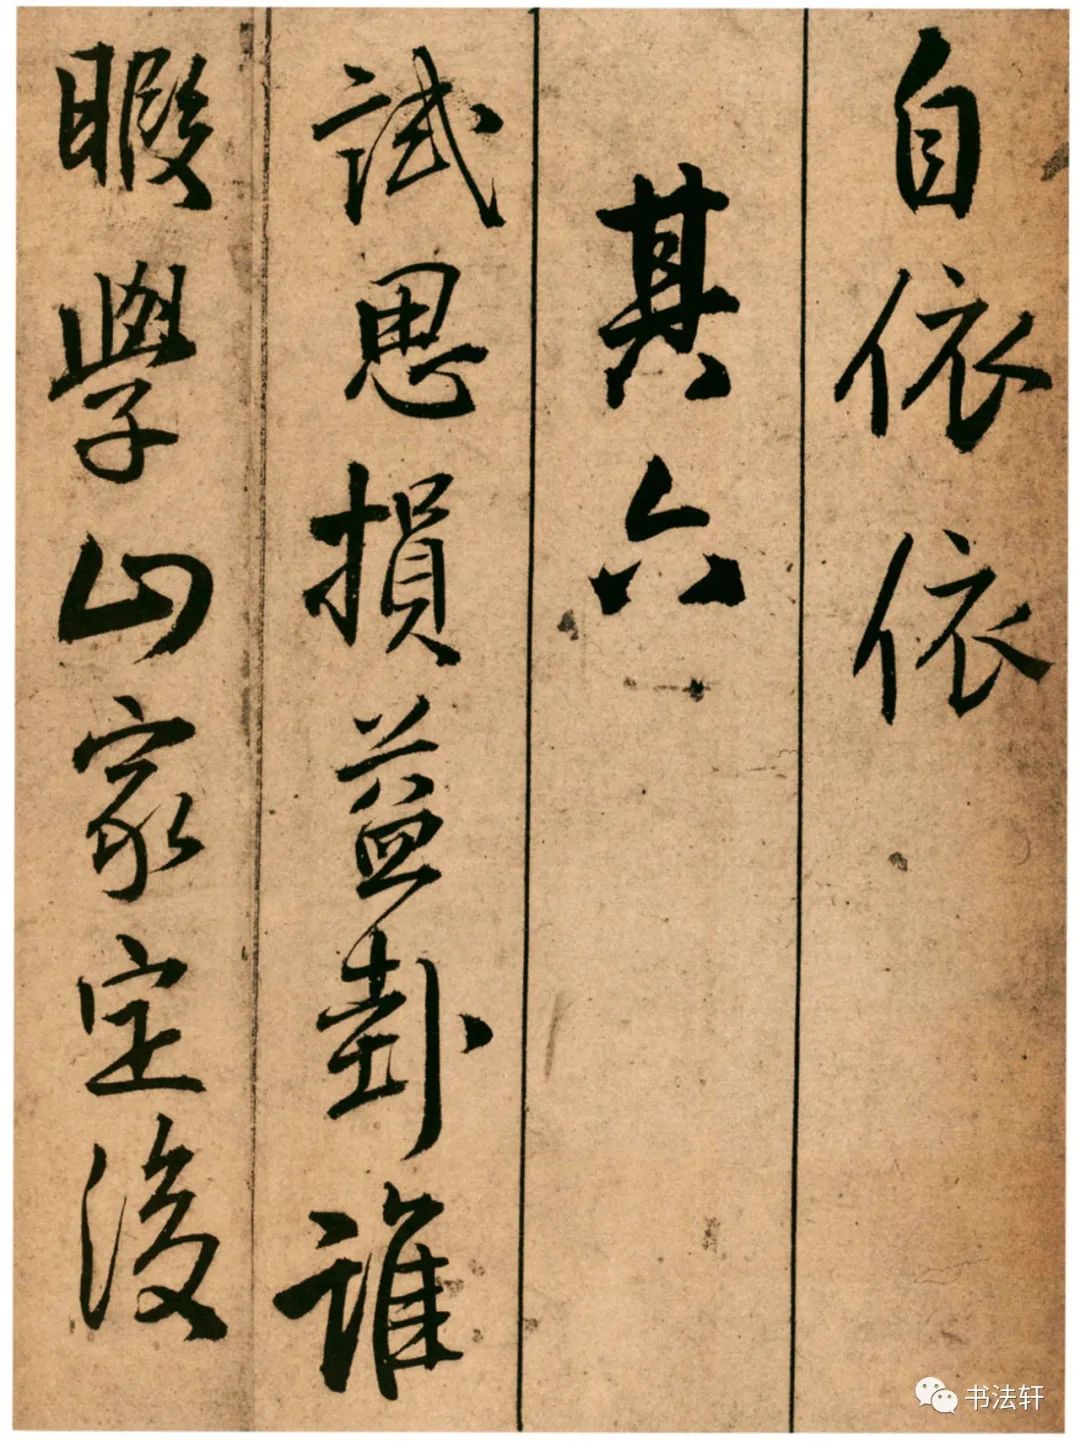 自依依
其六
試思損益卦誰
暇學山家定後
书法轩